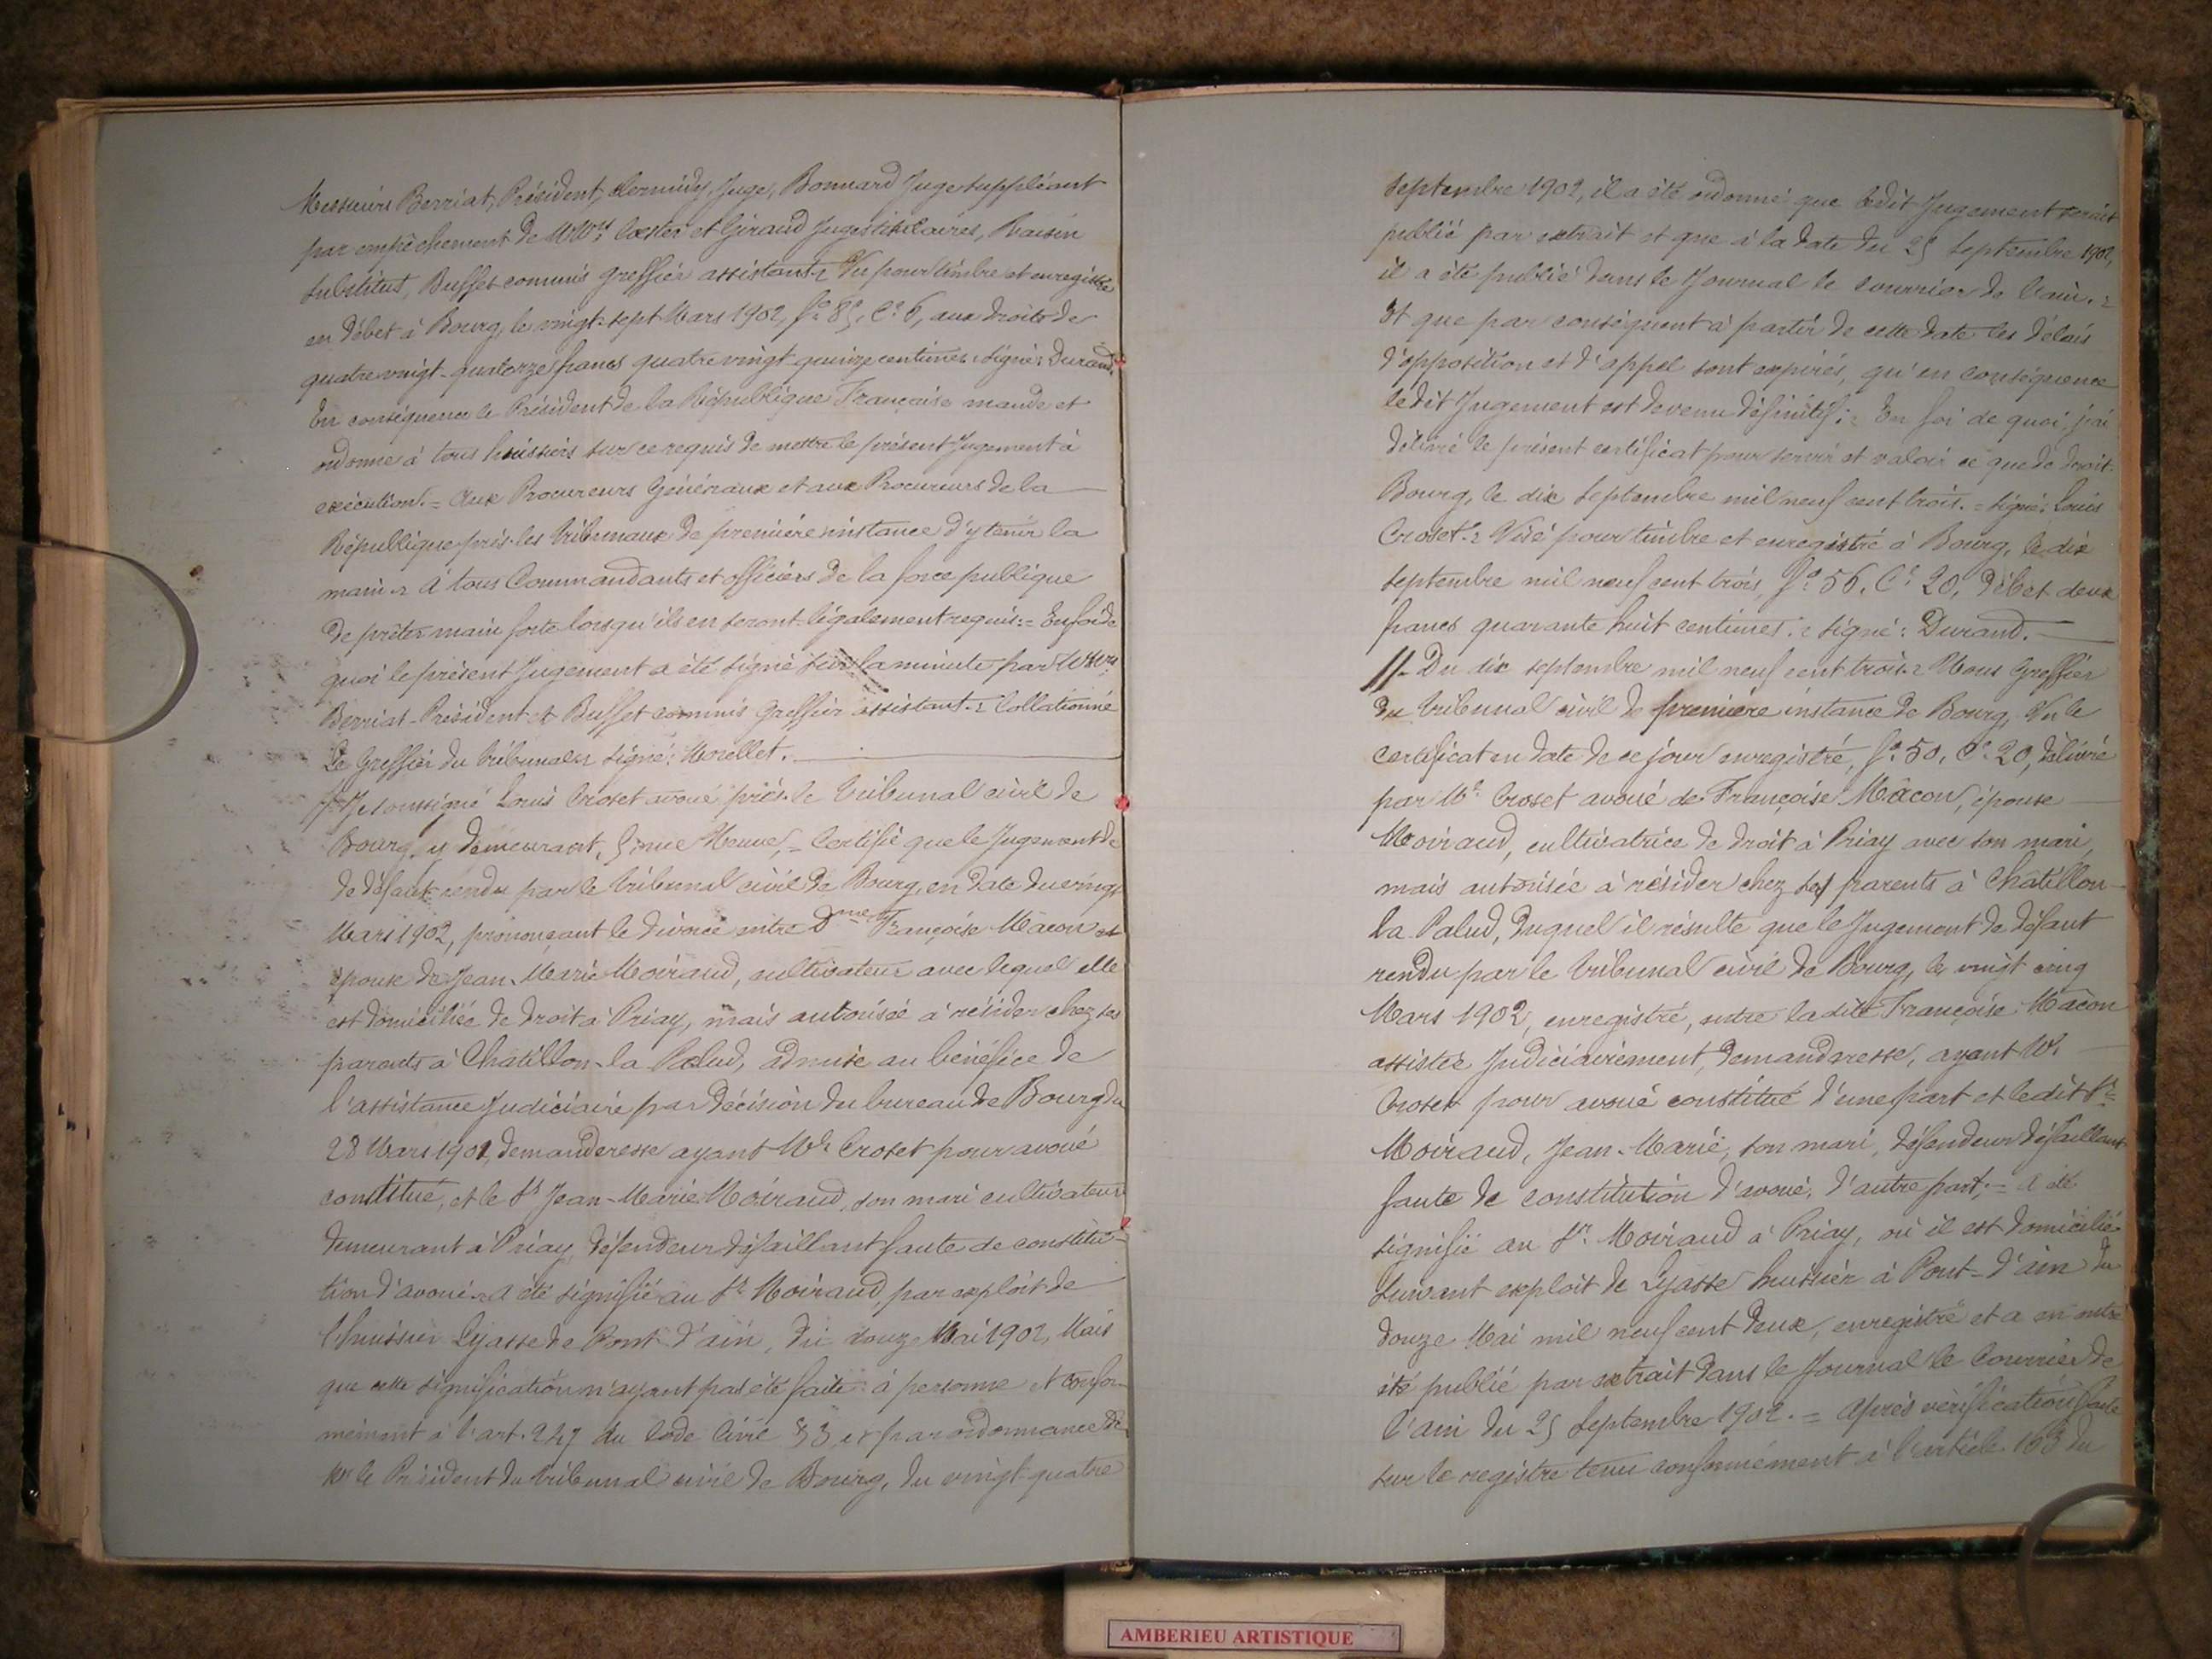 Messieurs Berriat, Président, Juge, Bonnard Juge suppléant
par empêchement de MMrs et Giraud Juges titulaires, Raisin
substitut, Buffet commis greffier assistant. Vu pour timbre et enregistré
en débet à Bourg, le vingt-sept Mars 1902, fo 85, Ce 6, aux droits de
quatre vingt-quatorze francs quatre vingt quinze centimes. signé: Durand.
En conséquence le Président de la République Française mande et
ordonne à tous huissiers sur ce requis de mettre le présent Jugement à
exécution. = Aux Procureurs Généraux et aux Procureurs de la
République près les tribunaux de première instance d'y tenir la
main. = à tous Commandants et officiers de la force publique
de prêter main forte lorsqu'ils en seront légalement requis. = En foi de
quoi le présent Jugement a été signé sur la minute par MMrs
Berriat Président et Buffet commis Greffier assistant. = Collationné
Le Greffier du tribunal = signé: Morellet.
Je soussigné Louis Croset avoué près le tribunal civil de
Bourg, y demeurant, 5 rue Neuve, = Certifie que le Jugement de
de défaut rendu par le tribunal civil de Bourg, en date du vingt
Mars 1902, prononçant le divorce entre Dme Françoise Mâcon et
épouse de Jean-Marie Moiraud, cultivateur avec lequel elle
est domiciliée de droit à Priay, mais autorisée à résider chez ses
parents à Chatillon-la Palud, admise au bénéfice de
l'assistance Judiciaire par décision du bureau de Bourg du
28 Mars 1901, demanderesse ayant Me Croset pour avoué
constitué, et le Sr Jean-Marie Moiraud, son mari cultivateur
demeurant à Priay, défendeur défaillant faute de constitu-
tion d'avoué. = a été signifié au Sr Moiraud, par exploit de
l'huissier Lyasse de Pont-d'ain, du douze Mai 1902, Mais
que cette signification n'ayant pas été faite à personne et confor-
mément à l'art. 247 du Code Civil § 3 et par ordonnance de
Mr le Président du tribunal civil de Bourg, du vingt-quatre
septembre 1902, il a été ordonné que ledit Jugement serait
publié par extrait et que à la date du 25 septembre 1902,
il a été publié dans le Journal le Courrier de l'ain. =
Et que par conséquent à partir de cette date les délais
d'opposition et d'appel sont expirés, qu'en conséquence
ledit Jugement est devenu définitif. = En foi de quoi, j'ai
délivré le présent certificat pour servir et valoir ce que de droit.
Bourg, le dix septembre mil neuf cent trois. = signé: Louis
Croset. = Visé pour timbre et enregistré à Bourg, le dix
septembre mil neuf cent trois, fo 56, Ce 20, débet deux
francs quarante huit centimes. = signé: Durand.
//- Du dix septembre mil neuf cent trois. = Nous Greffier
du tribunal civil de première instance de Bourg, Vu le
certificat en date de ce jour enregistré, fo 50, Ce 20, délivré
par Me Croset avoué de Françoise Mâcon, épouse
Moiraud, cultivatrice de droit à Priay avec son mari
mais autorisée à résider chez ses parents à Châtillon-
la Palud, duquel il résulte que le Jugement de défaut
rendu par le tribunal civil de Bourg, le vingt cinq
Mars 1902, enregistré, entre ladite Françoise Mâcon
assistée Judiciairement, demanderesse, ayant M.
Croset pour avoué constitué d'une part et ledit Sr
Moiraud, Jean-Marie, son mari, défendeur défaillant
faute de constitution d'avoué, d'autre part; = a été
signifié au Sr. Moiraud à Priay, où il est domicilié
suivant exploit de Lyasse huissier à Pont-d'ain du
douze Mai mil neuf cent deux, enregistré et a en outre
été publié par extrait dans le Journal le Courrier de
l'ain du 25 septembre 1902. = Après vérification faite
sur le registre tenu conformément à l'article 163 du
AMBERIEU ARTISTIQUE